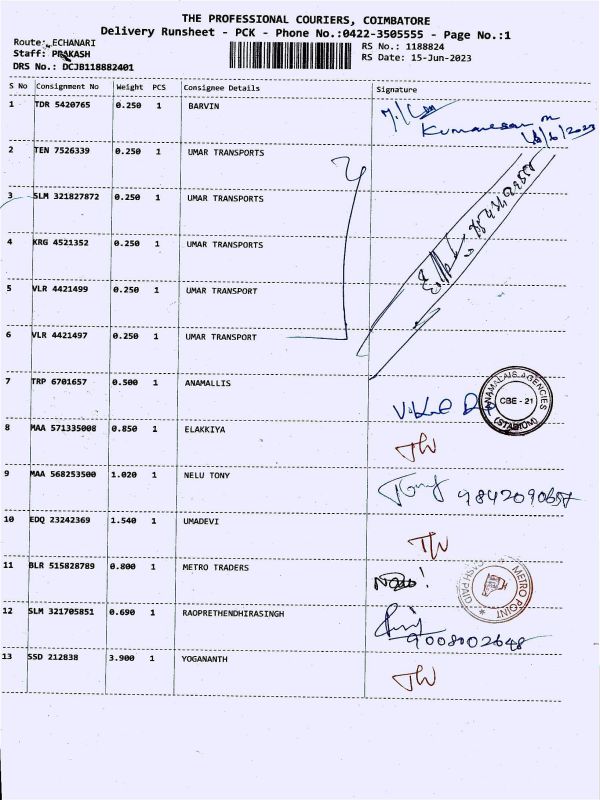 THE PROFESSIONAL COURIERS, COIMBATORE
Delivery Runsheet - PCK - Phone No.:0422-3505555 - Page No.:1
Route: ECHANARI
Staff: PRAKASH
DRS No.: DCJB118882401
RS No.: 1188824
RS Date: 15-Jun-2023
S No Consignment No Weight PCS Consignee Details Signature
1 TDR 5420765 0.250 1 BARVIN
Kumaresan m
2 TEN 7526339 0.250 1 UMAR TRANSPORTS
3 SLM 321827872 0.250 1 UMAR TRANSPORTS
4 KRG 4521352 0.250 1 UMAR TRANSPORTS
5 VLR 4421499 0.250 1 UMAR TRANSPORT
6 VLR 4421497 0.250 1 UMAR TRANSPORT
7 TRP 6701657 0.500 1 ANAMALLIS
ANAMALAIS AGENCIES
CBE - 21
(STADIUM)
8 MAA 571335008 0.850 1 ELAKKIYA
9 MAA 568253500 1.020 1 NELU TONY
9842090657
10 EDQ 23242369 1.540 1 UMADEVI
11 BLR 515828789 0.800 1 METRO TRADERS
METRO POINT
CASH PAID
12 SLM 321705851 0.690 1 RAOPRETHENDHIRASINGH
9008002648
13 SSD 212838 3.900 1 YOGANANTH